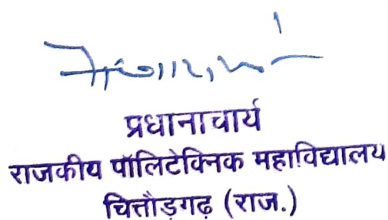 प्रधानाचार्य
राजकीय पॉलिटेक्निक महाविद्यालय
चित्तौड़गढ़ (राज.)